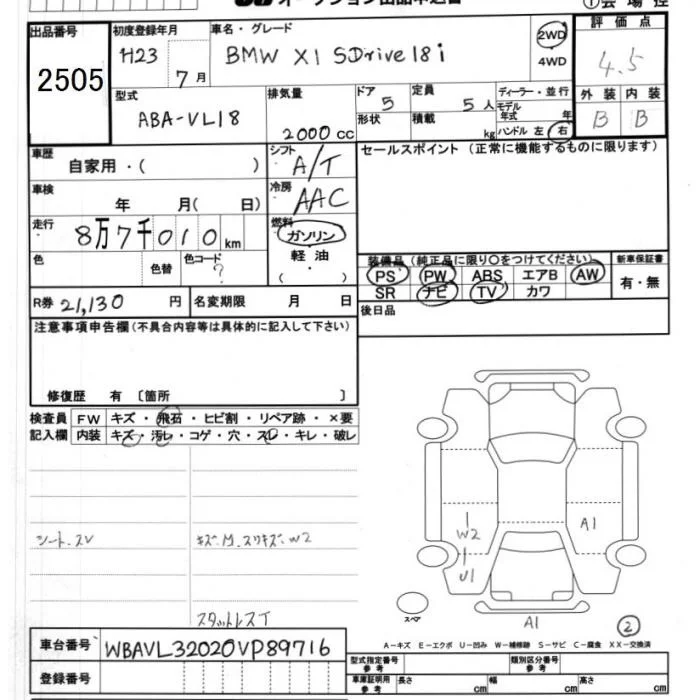 オークション出品申込書
① 会場控
出品番号
2505
初度登録年月
H23 7月
車名・グレード
BMW X1 SDrive18i
2WD
4WD
評価点
4.5
外装 内装
B B
型式
ABA-VL18
排気量
2000 cc
ドア 5
形状
定員 5人
積載 kg
ディーラー・並行
モデル年式 年
ハンドル 左 右
車歴
自家用・( )
シフト
A/T
車検
年 月( 日)
冷房
AAC
走行
8万7千010 km
燃料
ガソリン
軽油
( )
色
色替
色コード
?
R券 21,130 円
名変期限 月 日
セールスポイント (正常に機能するものに限ります)
装備品 (純正品に限り〇をつけてください)
PS PW ABS エアB AW
SR ナビ TV カワ
新車保証書
有・無
後日品
注意事項申告欄(不具合内容等は具体的に記入して下さい)
修復歴 有 〔箇所 〕
検査員 FW キズ・飛石・ヒビ割・リペア跡・×要
記入欄 内装 キズ・汚レ・コゲ・穴・スレ・キレ・破レ
シート.スレ
キズ.M.スリキズ.W2
スタットレスT
W2
U1
A1
A1
スペア
②
A-キズ E-エクボ U-凹み W-補修跡 S-サビ C-腐食 XX-交換済
車台番号 WBAVL32020VP89716
登録番号
型式指定番号 参考
類別区分番号 参考
車庫証明用 参考 長さ cm 幅 cm 高さ cm